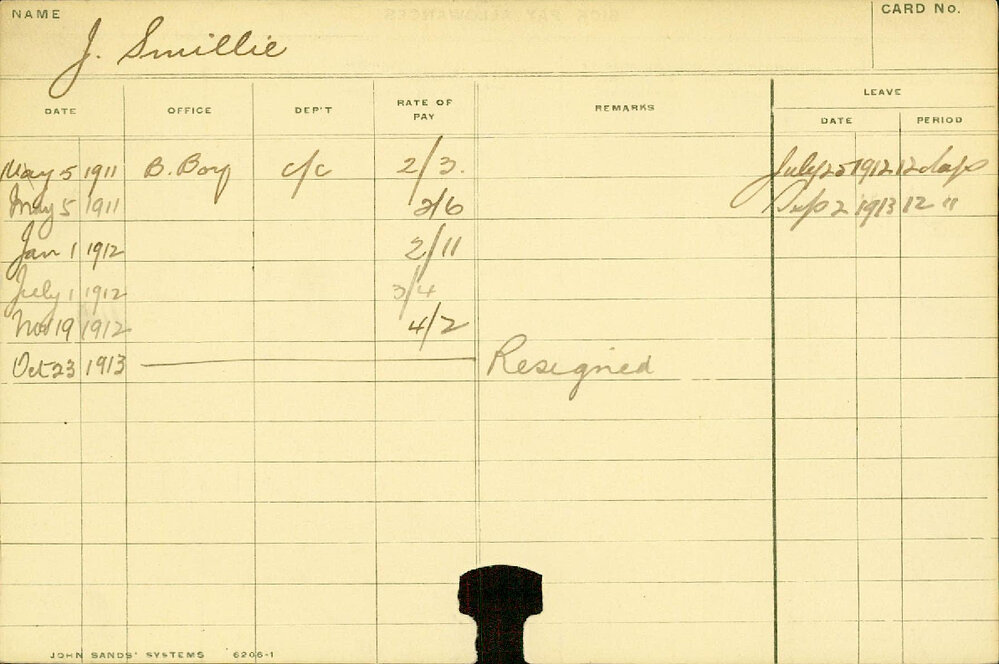 NAME
CARD No.
J. Smillie
DATE OFFICE DEP'T RATE OF PAY REMARKS LEAVE
DATE PERIOD
May 5 1911 B. Boy c/c 2/3. July 25 1912 12 days
May 5 1911 2/6 Sep 2 1913 12 "
Jan 1 1912 2/11
July 1 1912 3/4
Nov 19 1912 4/2
Oct 23 1913 Resigned
JOHN SANDS' SYSTEMS 6206-1